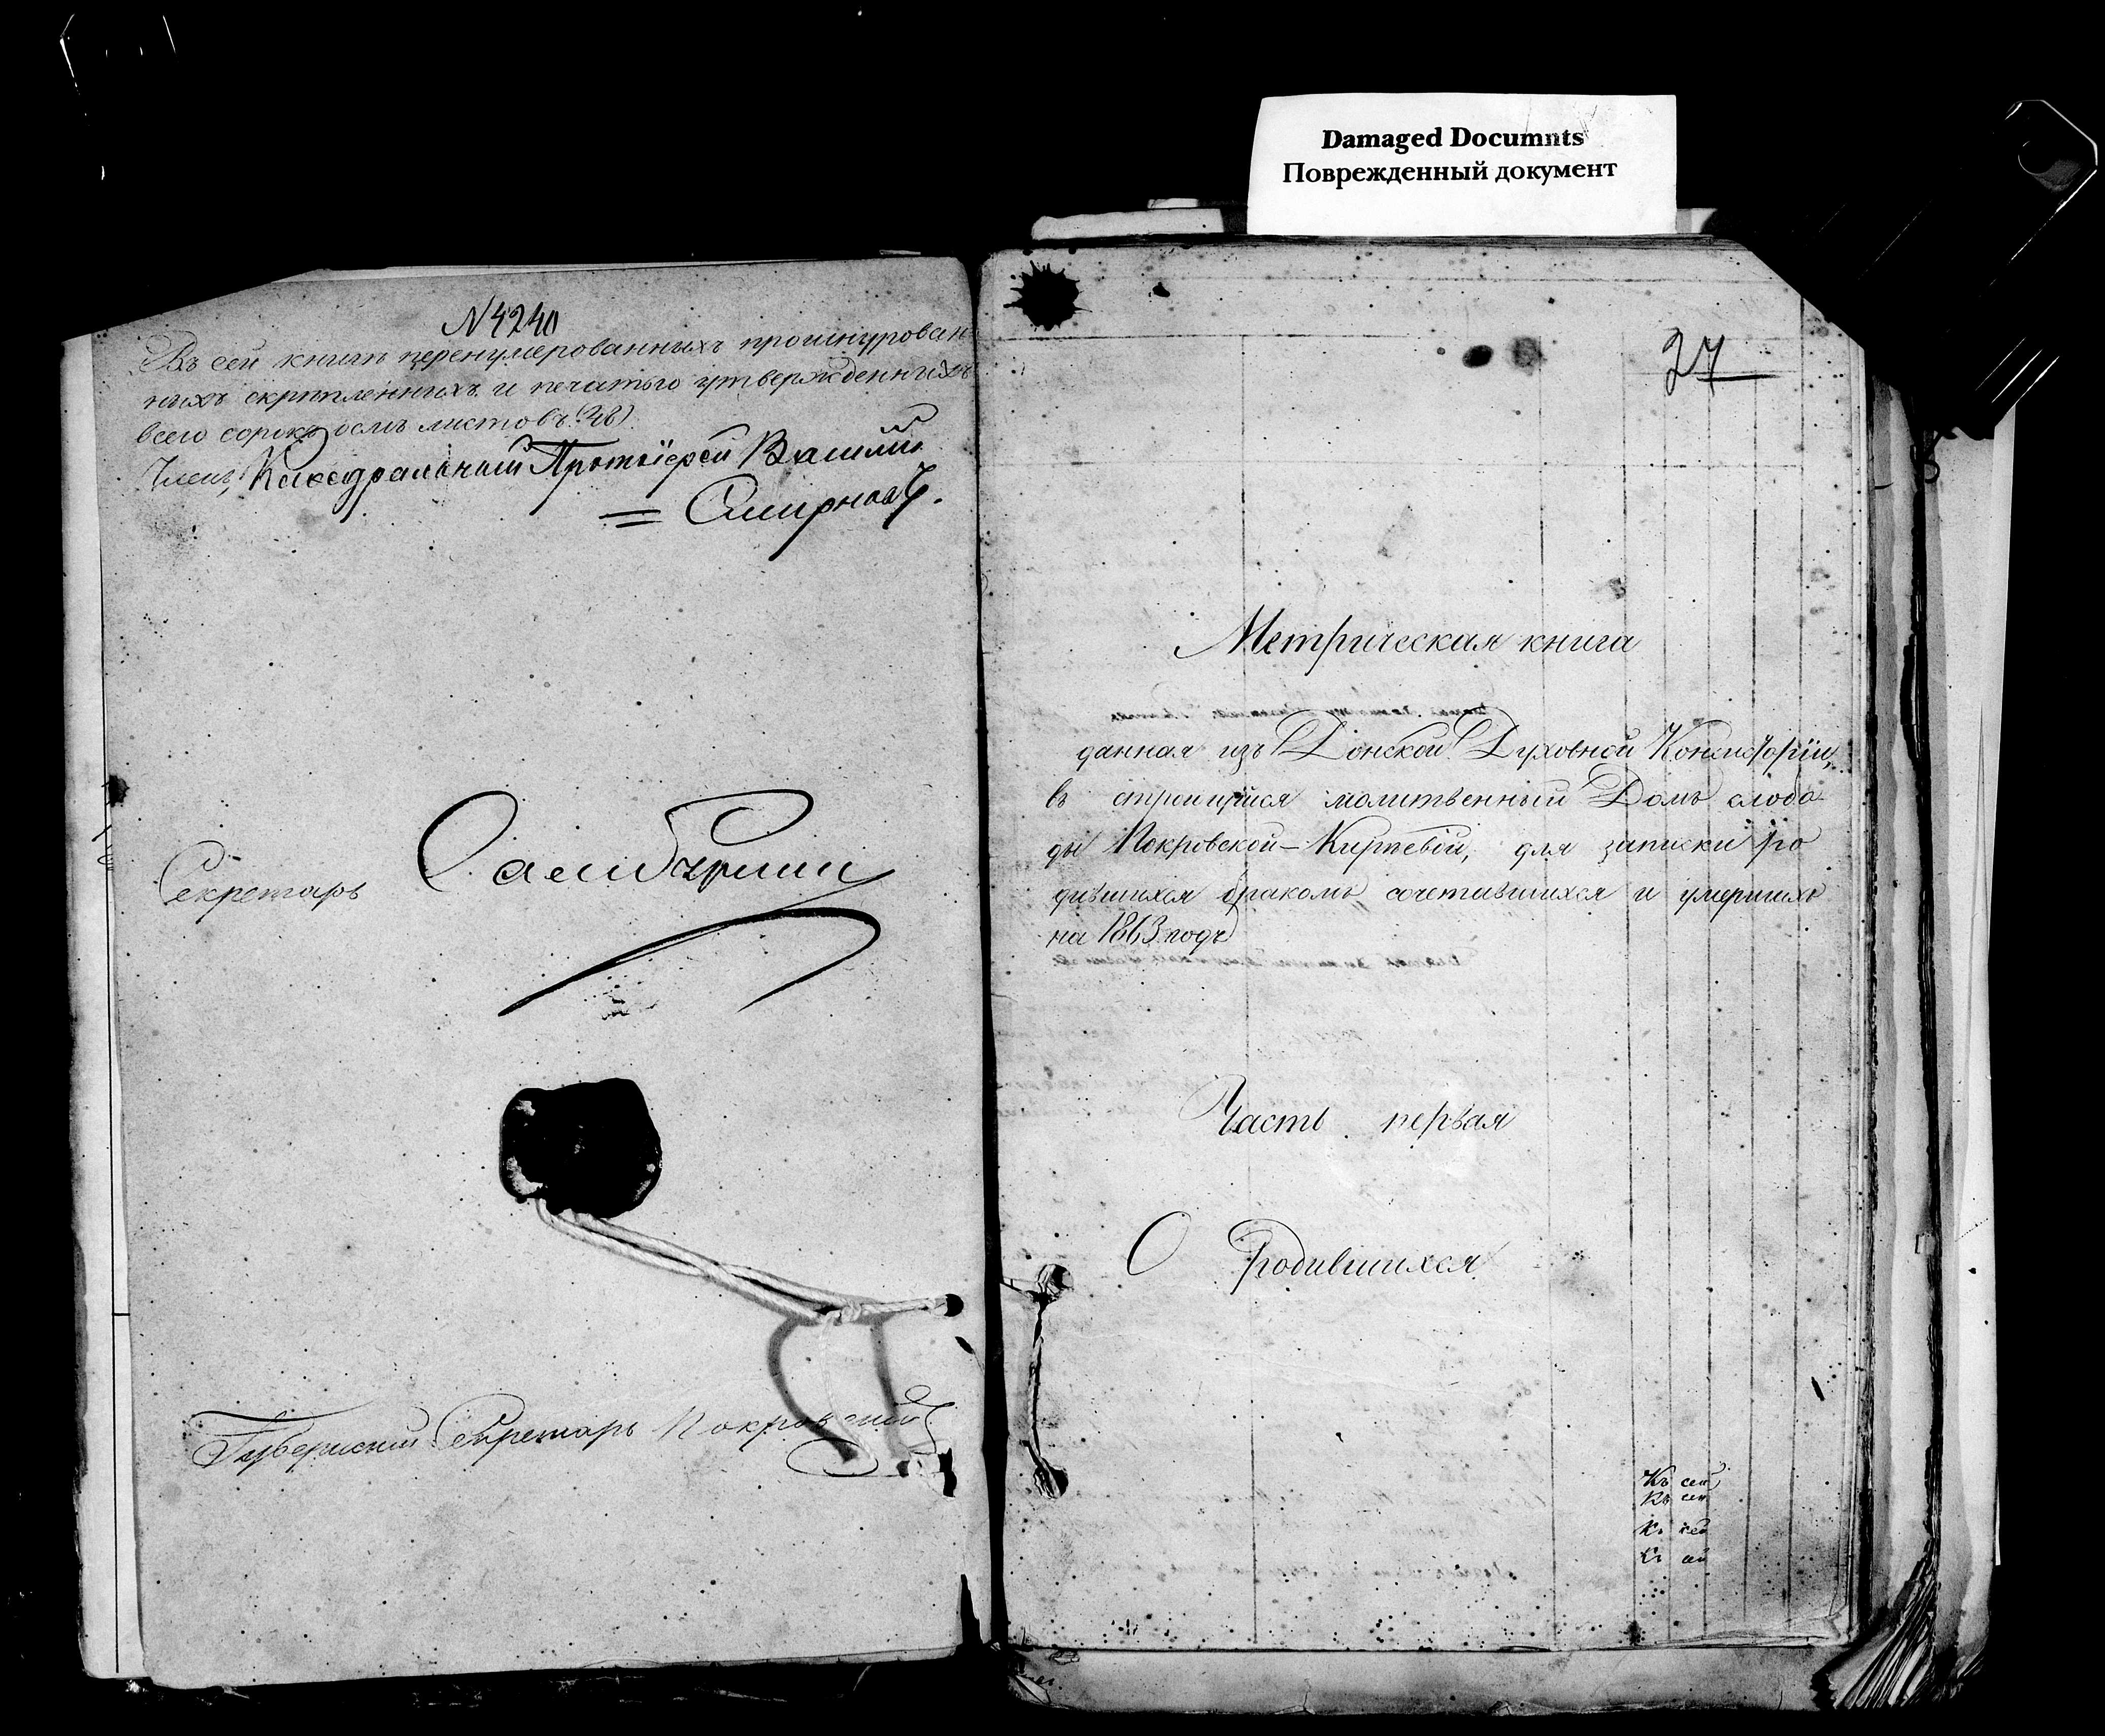 Damaged Documnts
Поврежденный документ
N 4240
Въ сей книгѣ перенумерованныхъ прошнурован-
ныхъ скрѣпленныхъ и печатью утвержденныхъ
всего сорокъ осмь листовъ. (48)
Членъ, Каѳедральный Протоіерей Василій
= Смирновъ.
Секретарь
Губернскій Секретарь Покровскій
27
Метрическая книга
данная изъ Донской Духовной Консисторіи,
въ строющійся молитвенный Домъ слобо
ды Покровской-Кирѣевой, для записки ро
дившихся бракомъ сочетавшихся и умершихъ
на 1863 годъ
Часть первая
О родившихся
Къ сей
Къ сей
Къ сей
Къ сей